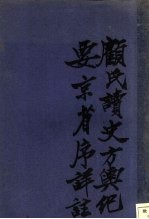 顧氏讀史方輿紀
要京省序詳註